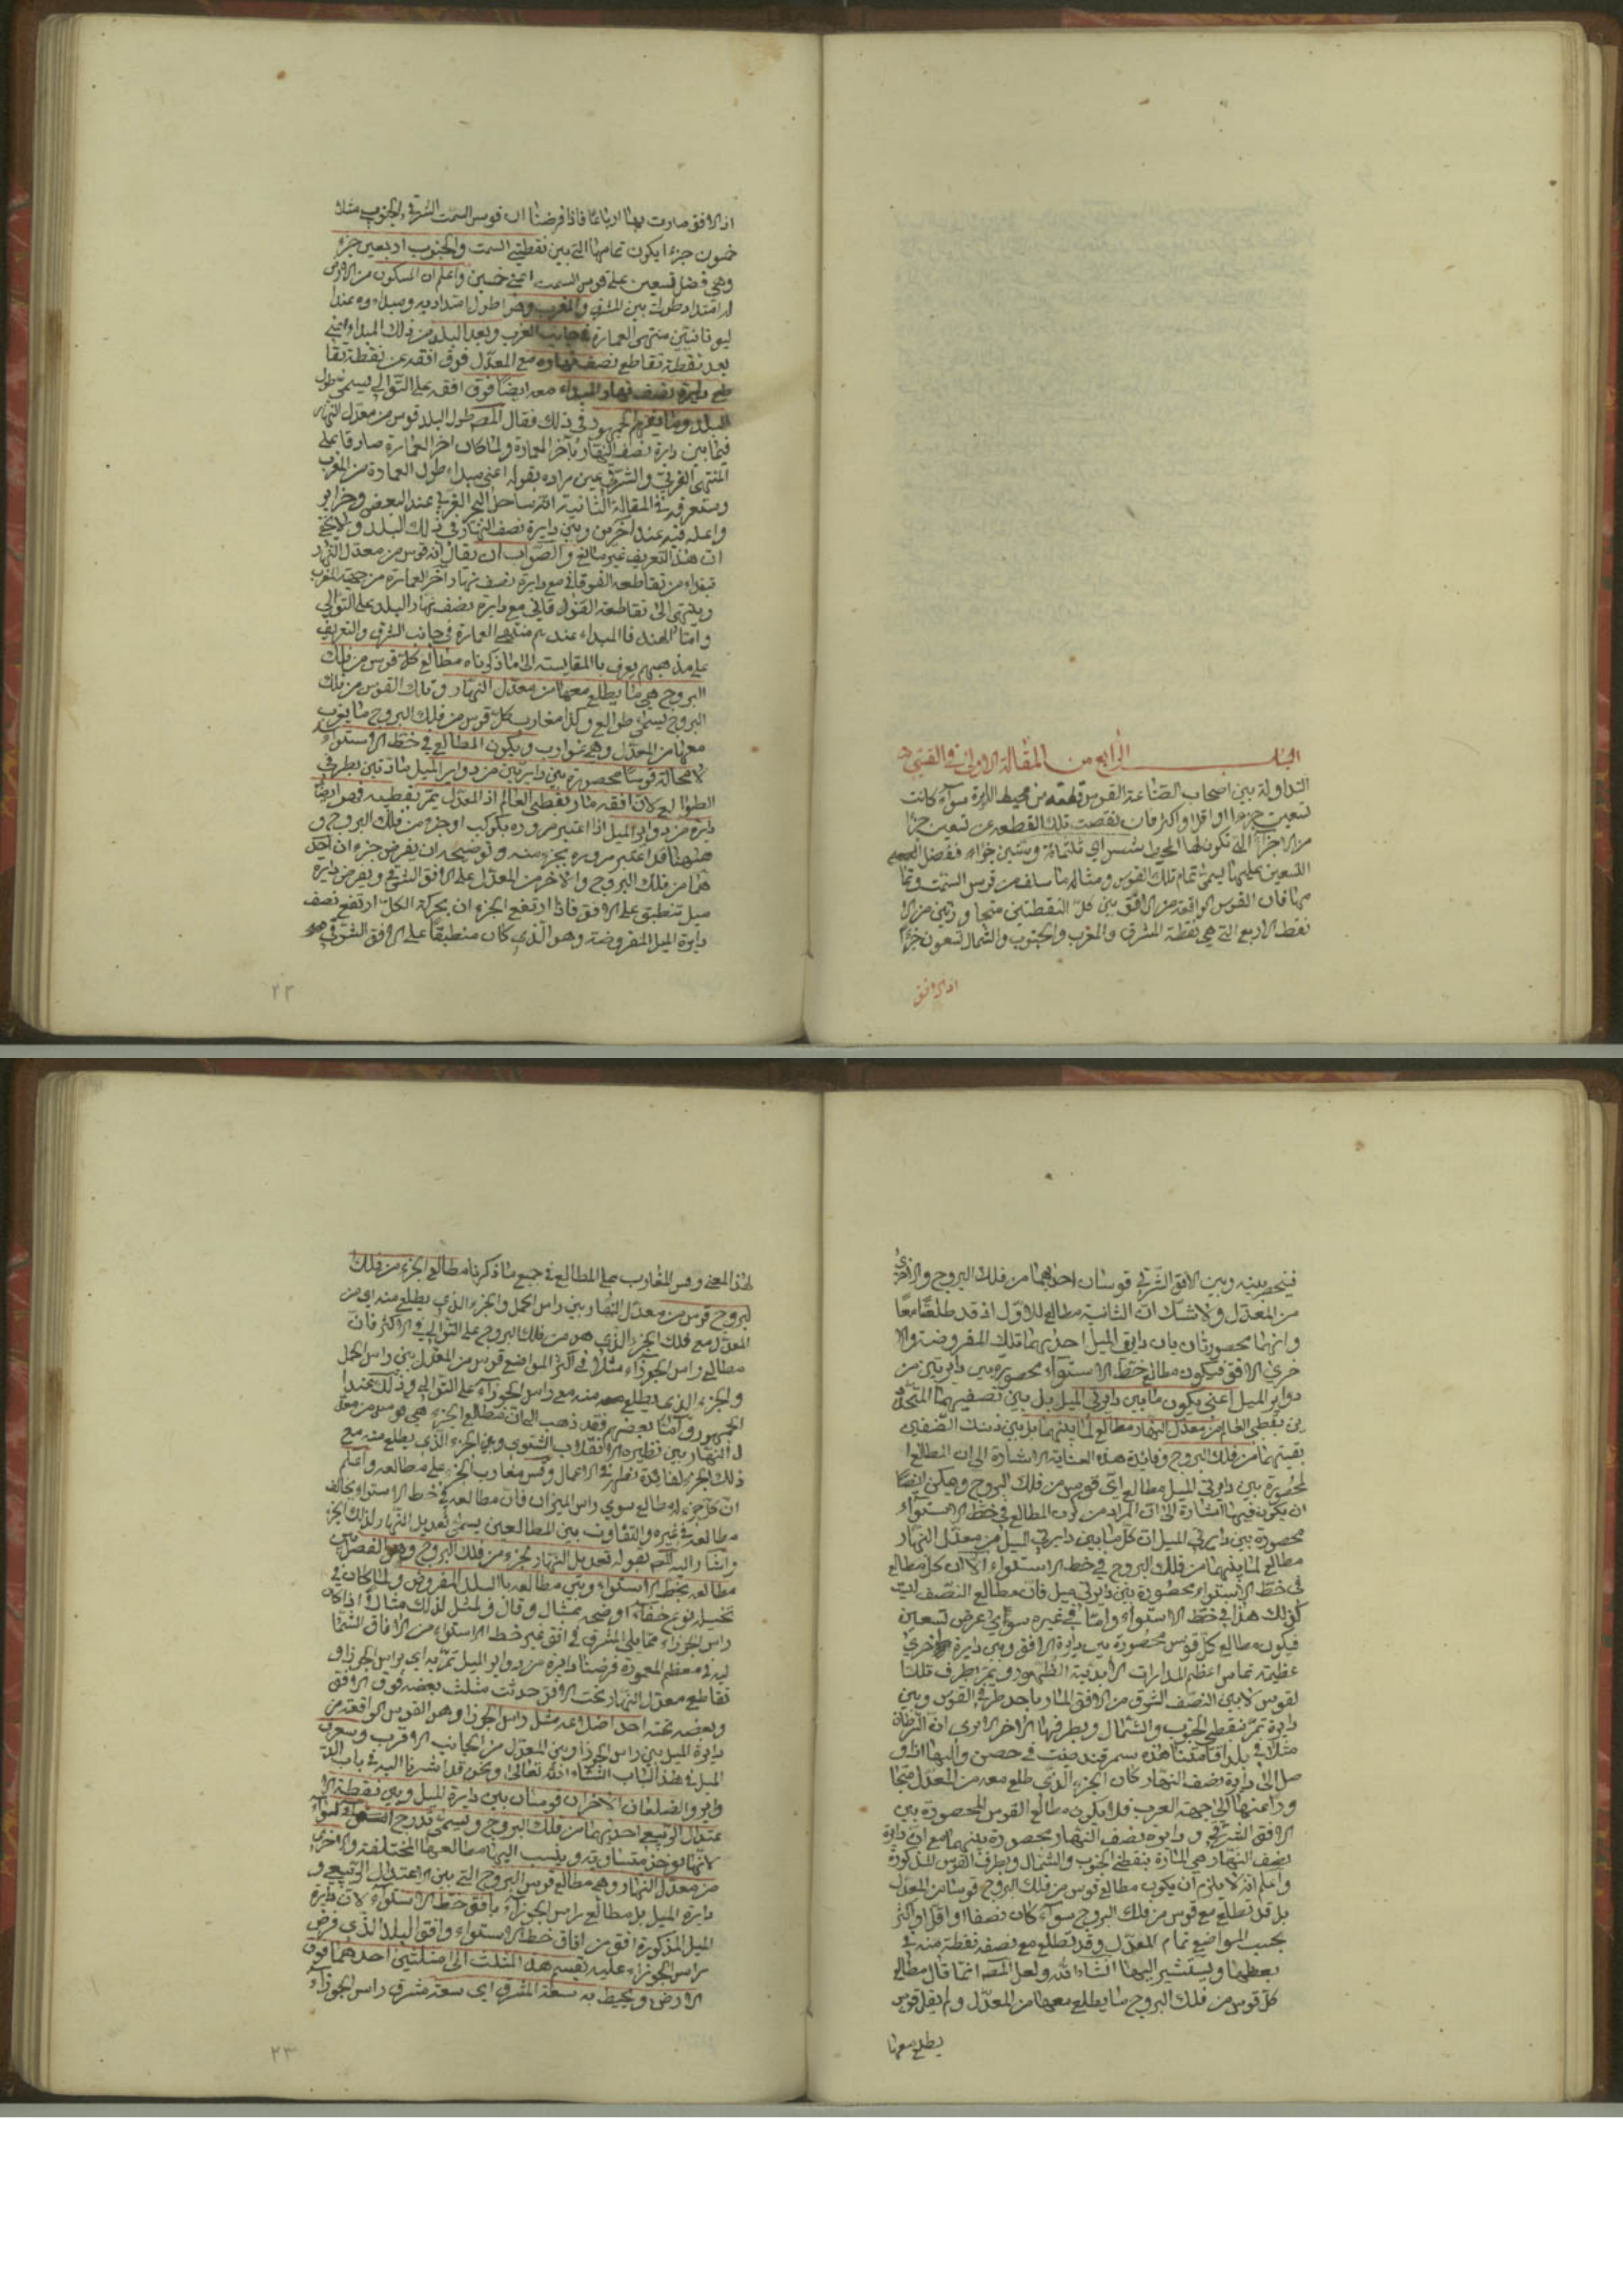 الباب الرابع من المقالة الاولى في القسي
التداولة بين اصحاب الصناعة القوس قطعة من محيط الدايرة سوآء كانت
تسعين جزءا او اقل او اكثر فان نقصت تلك القطعه عن تسعين جزءا
من الاجزآء التي تكون لها المحيط شس اي ثلثمائة وستين جزاء ففضل
التسعين عليها يسمى تمام تلك القوس ومثاله ما سلف من قوس السمت وتما
مها فان القوس الواقعة من الافق بين كل النقطتين متجاورتين من ال
نقط الاربع التي هي نقطة المشرق والمغرب والجنوب والشمال تسعون جزءا
اذ الافق
اذ الافق صارت بها ارباعا فاذا فرضنا ان قوس السمت الشرقي الجنوبي مثلا
خمسون جزءا يكون تمامها التي بين نقطتي السمت والجنوب اربعين جزء
وهي فضل تسعين على قوس السمت اعني خمسين واعلم ان المسكون من الارض
له امتداد طولا بين المشرق والمغرب وهو اطول امتداديه ومبداءوه عندا
ليونانيين منتهى العمارة في جانب الغرب وبعد البلد من ذلك المبداء اعني
بعد نقطة تقاطع نصف نهاره مع المعدل فوق افقه عن نقطة تقا
طع دايرة نصف نهار المبداء معه ايضا فوق افقه على التوالي يسمى طول
البلد وصا الجمهور في ذلك فقال المصـ طول البلد قوس من معدل النهار
فيما بين دايرة نصف النهار بآخر العمارة ولما كان اخر العمارة صادقا على
المنتهى الغربي والشرقي عين مراده بقوله اعني مبداء طول العمارة من المغرب
وستعرف في المقالة الثانية انه ساحل البحر الغربي عند البعض وجزاير
واغله فيه عند آخرين وبين دايرة نصف النهار في ذلك البلد ولا يخفى
ان هذا التعريف غير مانع والصواب ان يقال انه قوس من معدل النهار
تبتداء من تقاطعه الفوقاني مع دايرة نصف نهار آخر العمارة من جهة المغرب
وينتهى الى تقاطعه الفوقاني مع دايرة نصف نهار البلد على التوالي
وامتا الهند فالمبداء عندهم منتهى العمارة في جانب الشرق والتعريف
على مذهبهم يعرف بالمقايسة الى ما ذكرناه مطالع كل قوس من فلك
البروج هي ما يطلع معها من معدل النهار وتلك القوس من فلك
البروج يسمى طوالع وكذا مغارب كل قوس من فلك البروج ما يغرب
معها من المعدل وهي غوارب ويكون المطالع في خط الاستوآء
لا محالة قوسا محصورة بين دايرتين من دواير الميل مارتين بطرفي
الطوالع لان افقه مار بقطبي العالم اذ المعدل يمر بقطبيه فهو ايضا
دايرة من دواير الميل اذا اعتبر مروره بكوكب او جزء من فلك البروج و
ههنا قد اعتبر مروره بجزء منه وتوضيحه ان يفرض جزءان احد
هما من فلك البروج والآخر من المعدل على الافق الشرقي ويفرض دايرة
ميل تنطبق على الافق فاذا ارتفع الجزءان بحركة الكل ارتفع نصف
دايرة الميل المفروضة وهو الذي كان منطبقا على الافق الشرقي
٢٢
فينحصر بينه وبين الافق الشرقي قوسان احدهما من فلك البروج والاخرى
من المعدل ولا شك ان الثانية مطالع للاول اذ قد طلعتا معا
وانهما محصورتان بان دايرتي الميل احدىهما تلك المفروضة والا
خرى الافق فيكون مطالع خط الاستوآء محصورة بين دايرتين من
دواير الميل اعني يكون ما بين دايرتي الميل بل بين نصفيهما المتحد
ين بقطبي العالم من معدل النهار مطالع لما بينهما بل بين ذينك النصفين
بقيتهما من فلك البروج وفائدة هذه العناية الاشارة الى ان المطالع ا
لمحصورة بين دايرتي الميل مطالع اي قوس من فلك البروج ويمكن ايضا
ان يكون فيها اشارة الى ان المراد من كون المطالع في خط الاستوآء
محصورة بين دايرتي الميل ان كل ما بين دايرتي الميل من معدل النهار
مطالع لما بينهما من فلك البروج في خط الاستوآء الا ان كل مطالع
في خط الاستوآء محصورة بين دايرتي ميل فان مطالع النصف ليست
كذلك هذا في خط الاستوآء وامتا في غيره سواي عرض تسعين
فيكون مطالع كل قوس محصورة بين دايرة الافق وبين دايرة اخرى
عظيمة تماس اعظم المدارات الابدية الظهور ويمر بطرف تلك ا
لقوس لا بين النصف الشرقي من الافق المار باحد طرفي القوس وبين
دايرة تمر بنقطتي الجنوب والشمال وبطرفها الآخر الا يرى ان السرطان
مثلا في بلد اقامتنا هذه سمرقند صينت في حصن والبها اذا و
صل الى دايرة نصف النهار كان الجزء الذي طلع معه من المعدل متجا
وزا عنها الى جهة الغرب فلا يكون مطالع القوس المحصورة بين
الافق الشرقي و دايرة نصف النهار محصورة بينهما مع ان دايرة
نصف النهار هي المارة بنقطتي الجنوب والشمال وبطرف القوس المذكورة
واعلم انه لا يلزم ان يكون مطالع قوس من فلك البروج قوسا من المعدل
بل قد تطلع مع قوس من فلك البروج سوآء كان نصفا او اقل او اكثر
بحسب المواضع تمام المعدل وقد تطلع مع نصفه نقطة منه في
بعضها ويستشير اليهما انشاء الله ولعل المصـ انما قال مطالع
كل قوس من فلك البروج ما يطلع معها من المعدل ولم يقل قوس
يطلع معها
لهذا المعنى وقس المغارب على المطالع في جميع ما ذكرنا مطالع الجزء من فلك
البروج قوس من معدل النهار بين راس الحمل والجزء الذي يطلع منه اي من
المعدل مع فلك الجزء الذي هو من فلك البروج على التوالي في الاكثر فان
مطالع راس الجوزاء مثلا في اكثر المواضع قوس من المعدل بين راس الحمل
والجزء الذي يطلع منه مع راس الجوزآء على التوالي وذلك عند ا
لجمهور وامتا بعضهم فقد ذهب الى ان مطالع الجزء هي قوس من معد
ل النهار بين نظيرة الانقلاب الشتوي وبين الجزء الذي يطلع منه مع
ذلك الجزء لفائدة تظهر في الاعمال وقس مغارب الجزء على مطالعه واعلم
ان كل جزء له مطالع سوي راس الميزان فان مطالعه في خط الاستوآء يخالف
مطالعه في غيره والتفاوت بين المطالعين يسمى تعديل النهار لذلك الجزء
واشار اليه المصـ بقوله تعديل النهار لجزء من فلك البروج وهو الفضل بين
مطالعه بخط الاستوآء وبين مطالعه بالبلد المفروض ولما كان في
تخييله نوع خفآء اوضحه بمثال وقال ولمثل لذلك مثالا اذا كان
راس الجوزاء مما يلي المشرق في افق غير خط الاستوآء من الافاق الشما
لية في معظم المعمورة فرضنا دايرة من دواير الميل تمر به اي براس الجوزا و
تقاطع معدل النهار تحت الافق حدثت مثلث بعضه فوق الافق
وبعضه تحته احد اضلاعه مثل راس الجوزا وهو القوس الواقعة من
دايرة الميل بين راس الجوزا وبين المعدل من الجانب الاقرب وسيعرف
الميل في هذا الباب انشاء الله تعالى ونحن قد اشرنا اليه في باب الد
واير والضلعان الآخران قوسان بين دايرة الميل وبين نقطة الا
عتدال الربيعي احديهما من فلك البروج ويسمى درج السوآء
لانها يوخذ متساوية وينسب اليها مطالعها المختلفة والاخرى
من معدل النهار وهي مطالع قوس البروج التي بين الاعتدال الربيعي و
دايرة الميل بل مطالع راس الجوزآء بافق خط الاستوآء لان دايرة
الميل المذكورة افق من افاق خط الاستوآء وافق البلد الذي فرض
راس الجوزاء عليه يقسم هذا المثلث الى مثلثين احدهما فوق
الارض ويحيط به سعة المشرق اي سعة مشرق راس الجوزآء
٢٣